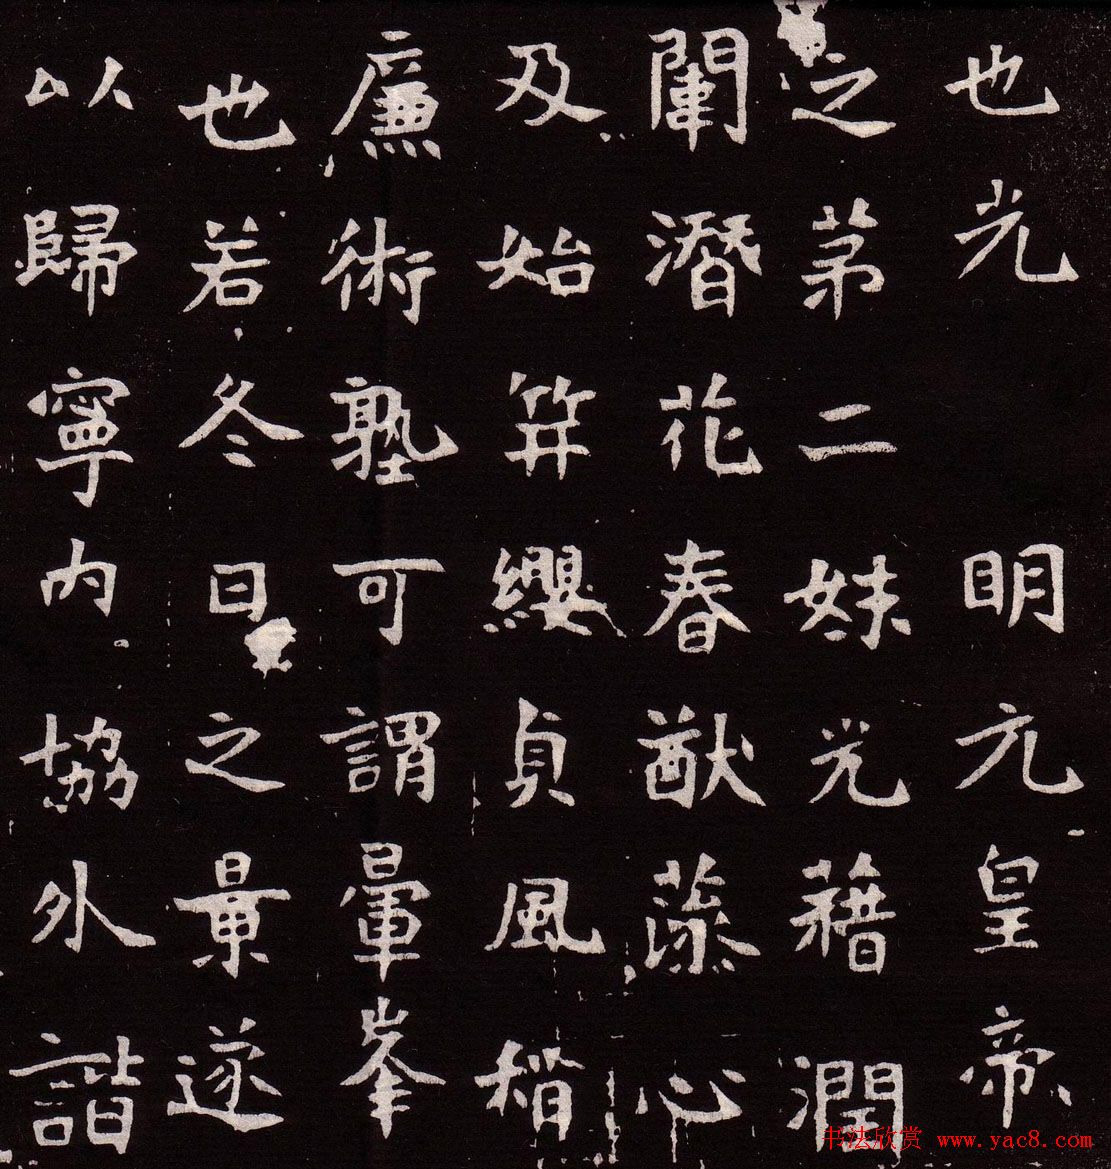 也光 明元皇帝
之苐二妹光藉潤
闈潛花春猷心
及始笄纓貞風稍
廉術塾可謂暈峯
也若冬日之景遂
以歸寧内協外諧
书法欣赏 www.yac8.com